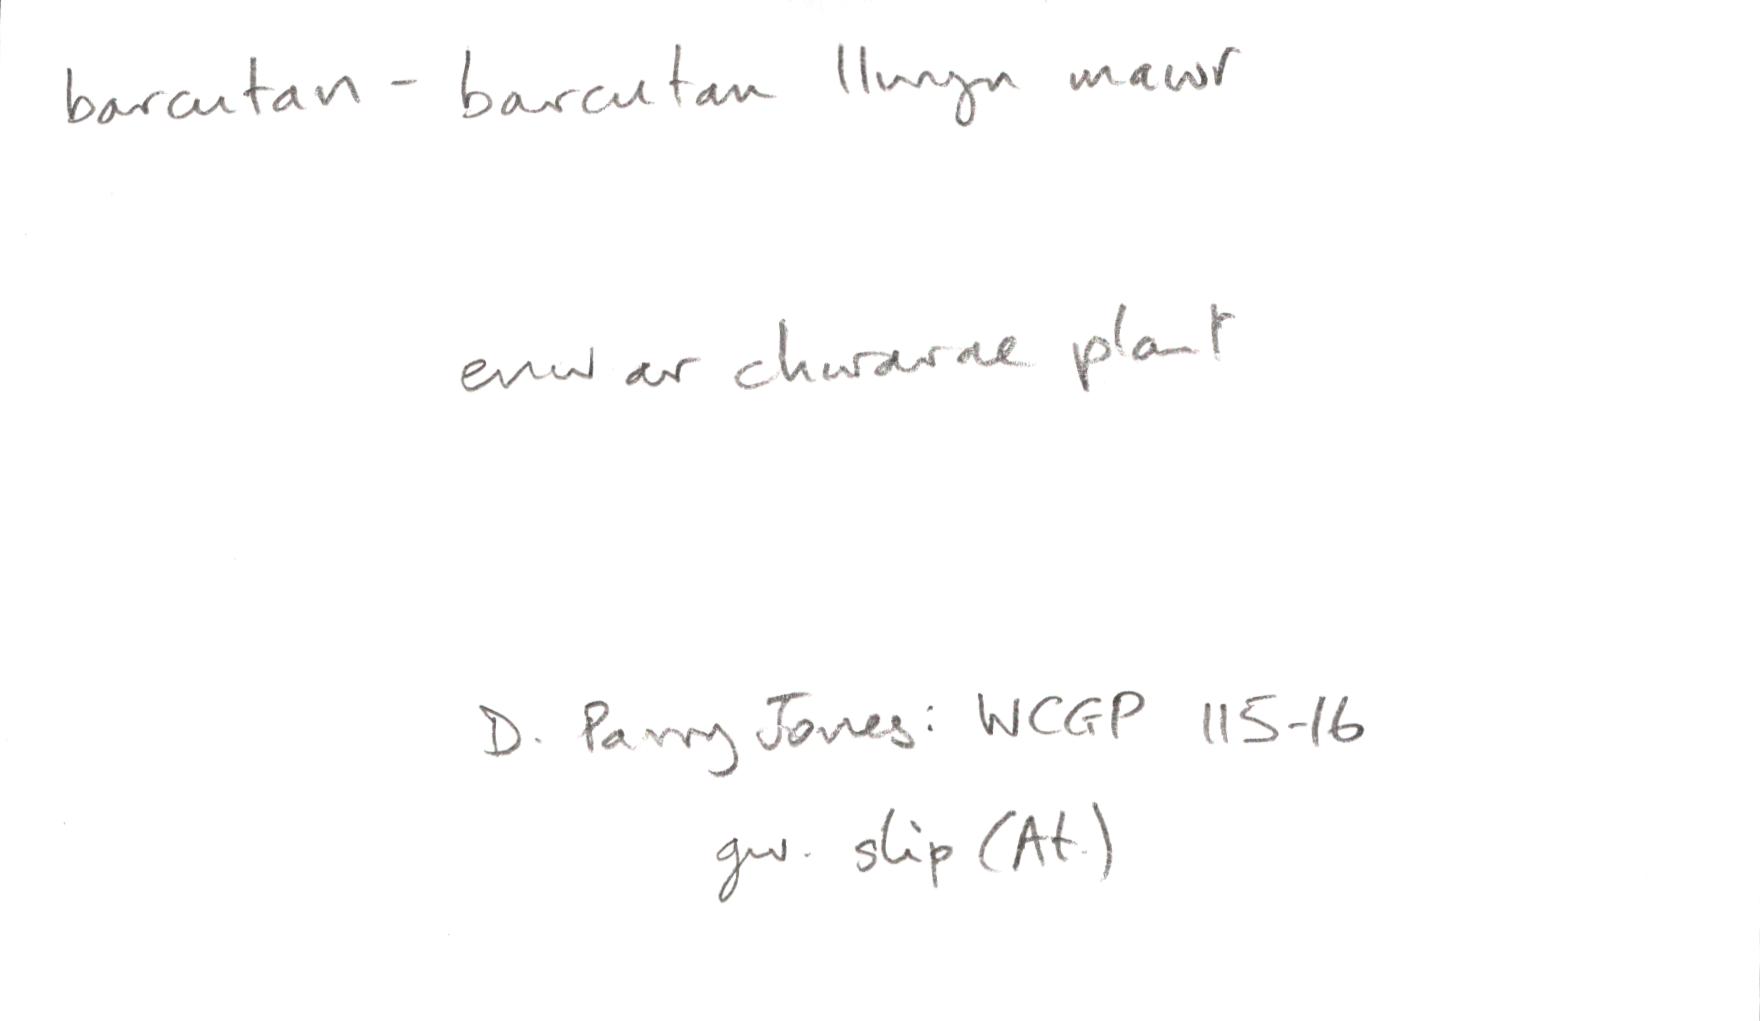 barcutan - barcutan llwyn mawr
enw ar chwarae plant
D. Parry Jones: WCGP 115-16
gw. slip (At.)